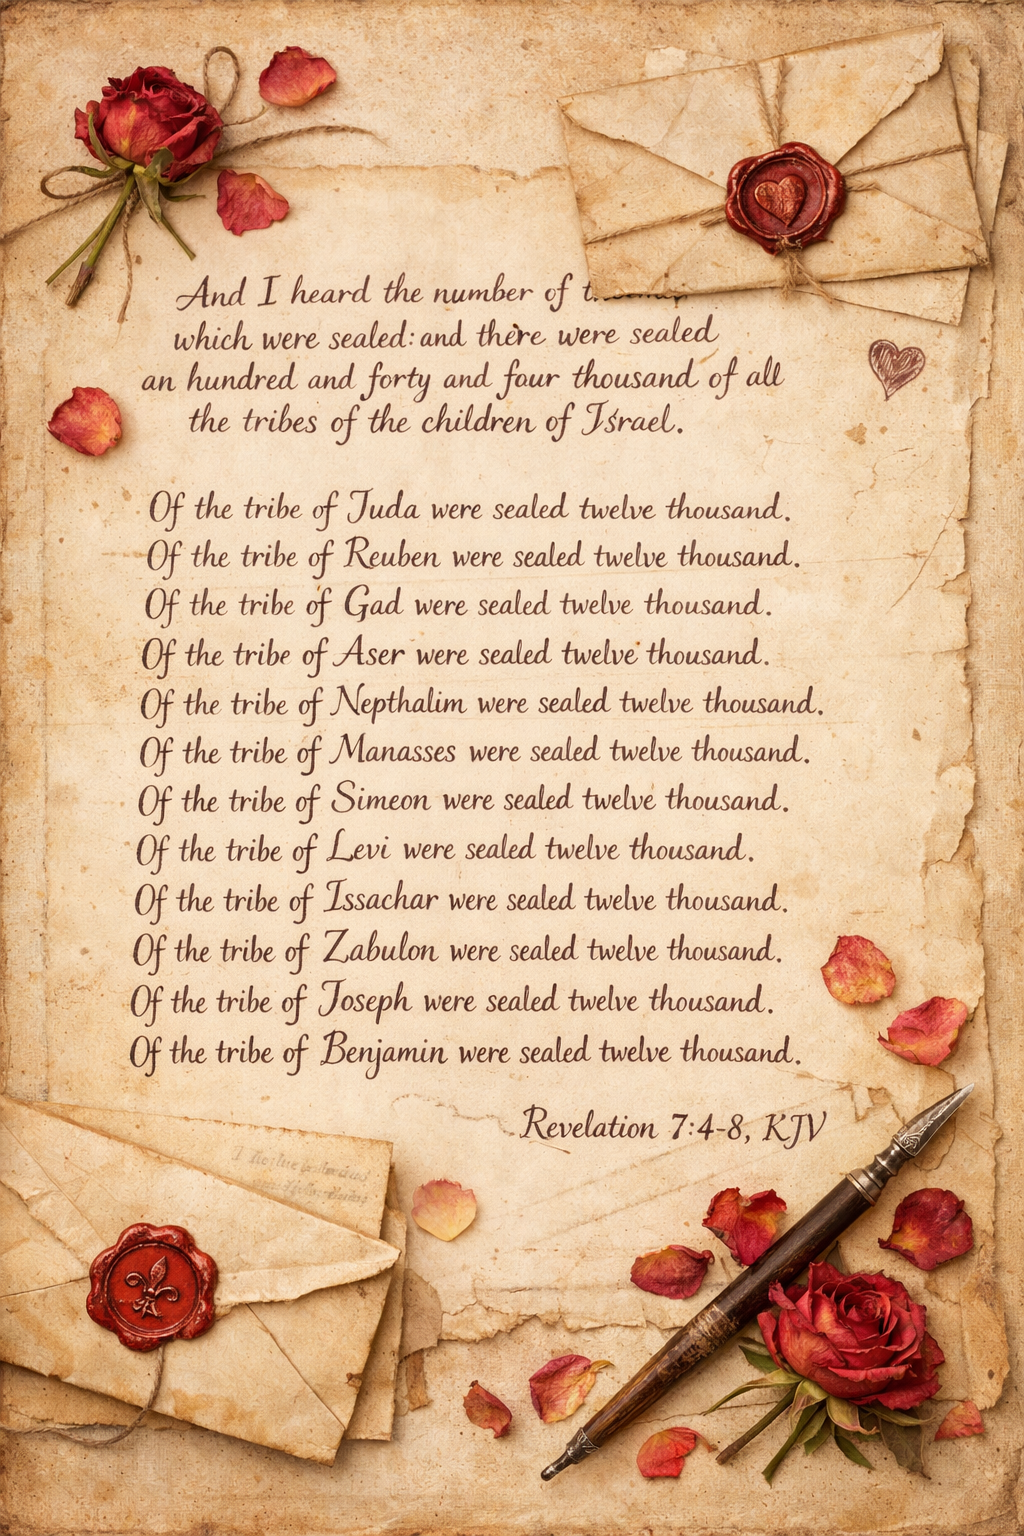 And I heard the number of
which were sealed: and there were sealed
an hundred and forty and four thousand of all
the tribes of the children of Israel.
Of the tribe of Juda were sealed twelve thousand.
Of the tribe of Reuben were sealed twelve thousand.
Of the tribe of Gad were sealed twelve thousand.
Of the tribe of Aser were sealed twelve thousand.
Of the tribe of Nepthalim were sealed twelve thousand.
Of the tribe of Manasses were sealed twelve thousand.
Of the tribe of Simeon were sealed twelve thousand.
Of the tribe of Levi were sealed twelve thousand.
Of the tribe of Issachar were sealed twelve thousand.
Of the tribe of Zabulon were sealed twelve thousand.
Of the tribe of Joseph were sealed twelve thousand.
Of the tribe of Benjamin were sealed twelve thousand.
Revelation 7:4-8, KJV